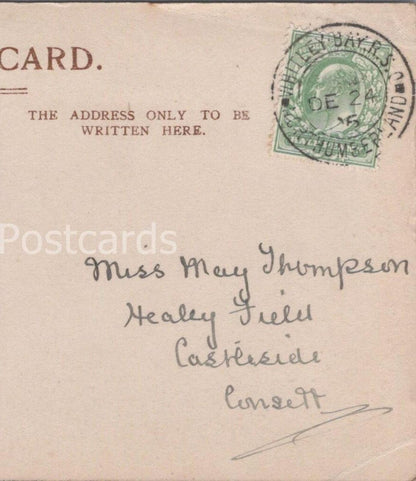 CARD.
THE ADDRESS ONLY TO BE
WRITTEN HERE.
WHITLEY-BAY.R.S.O
DE 24
05
NORTHUMBERLAND
Postcards
Miss May Thompson
Healey Field
Castleside
Consett